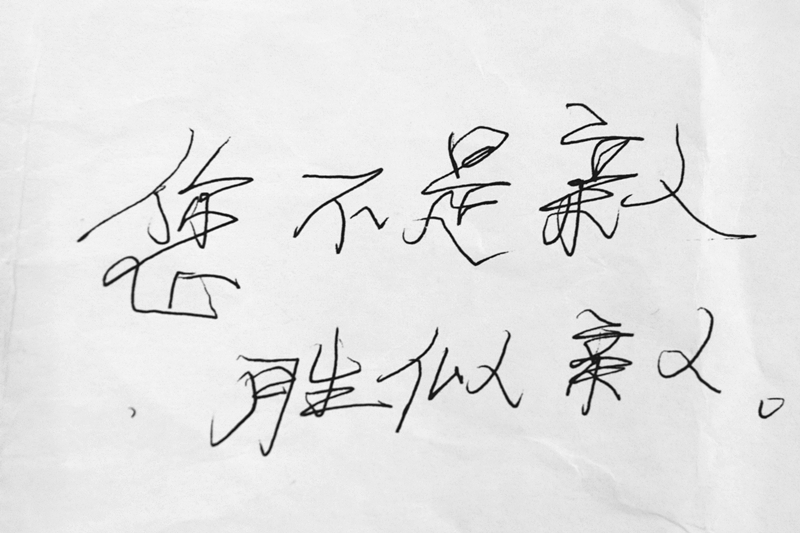 您不是亲人
，胜似亲人。